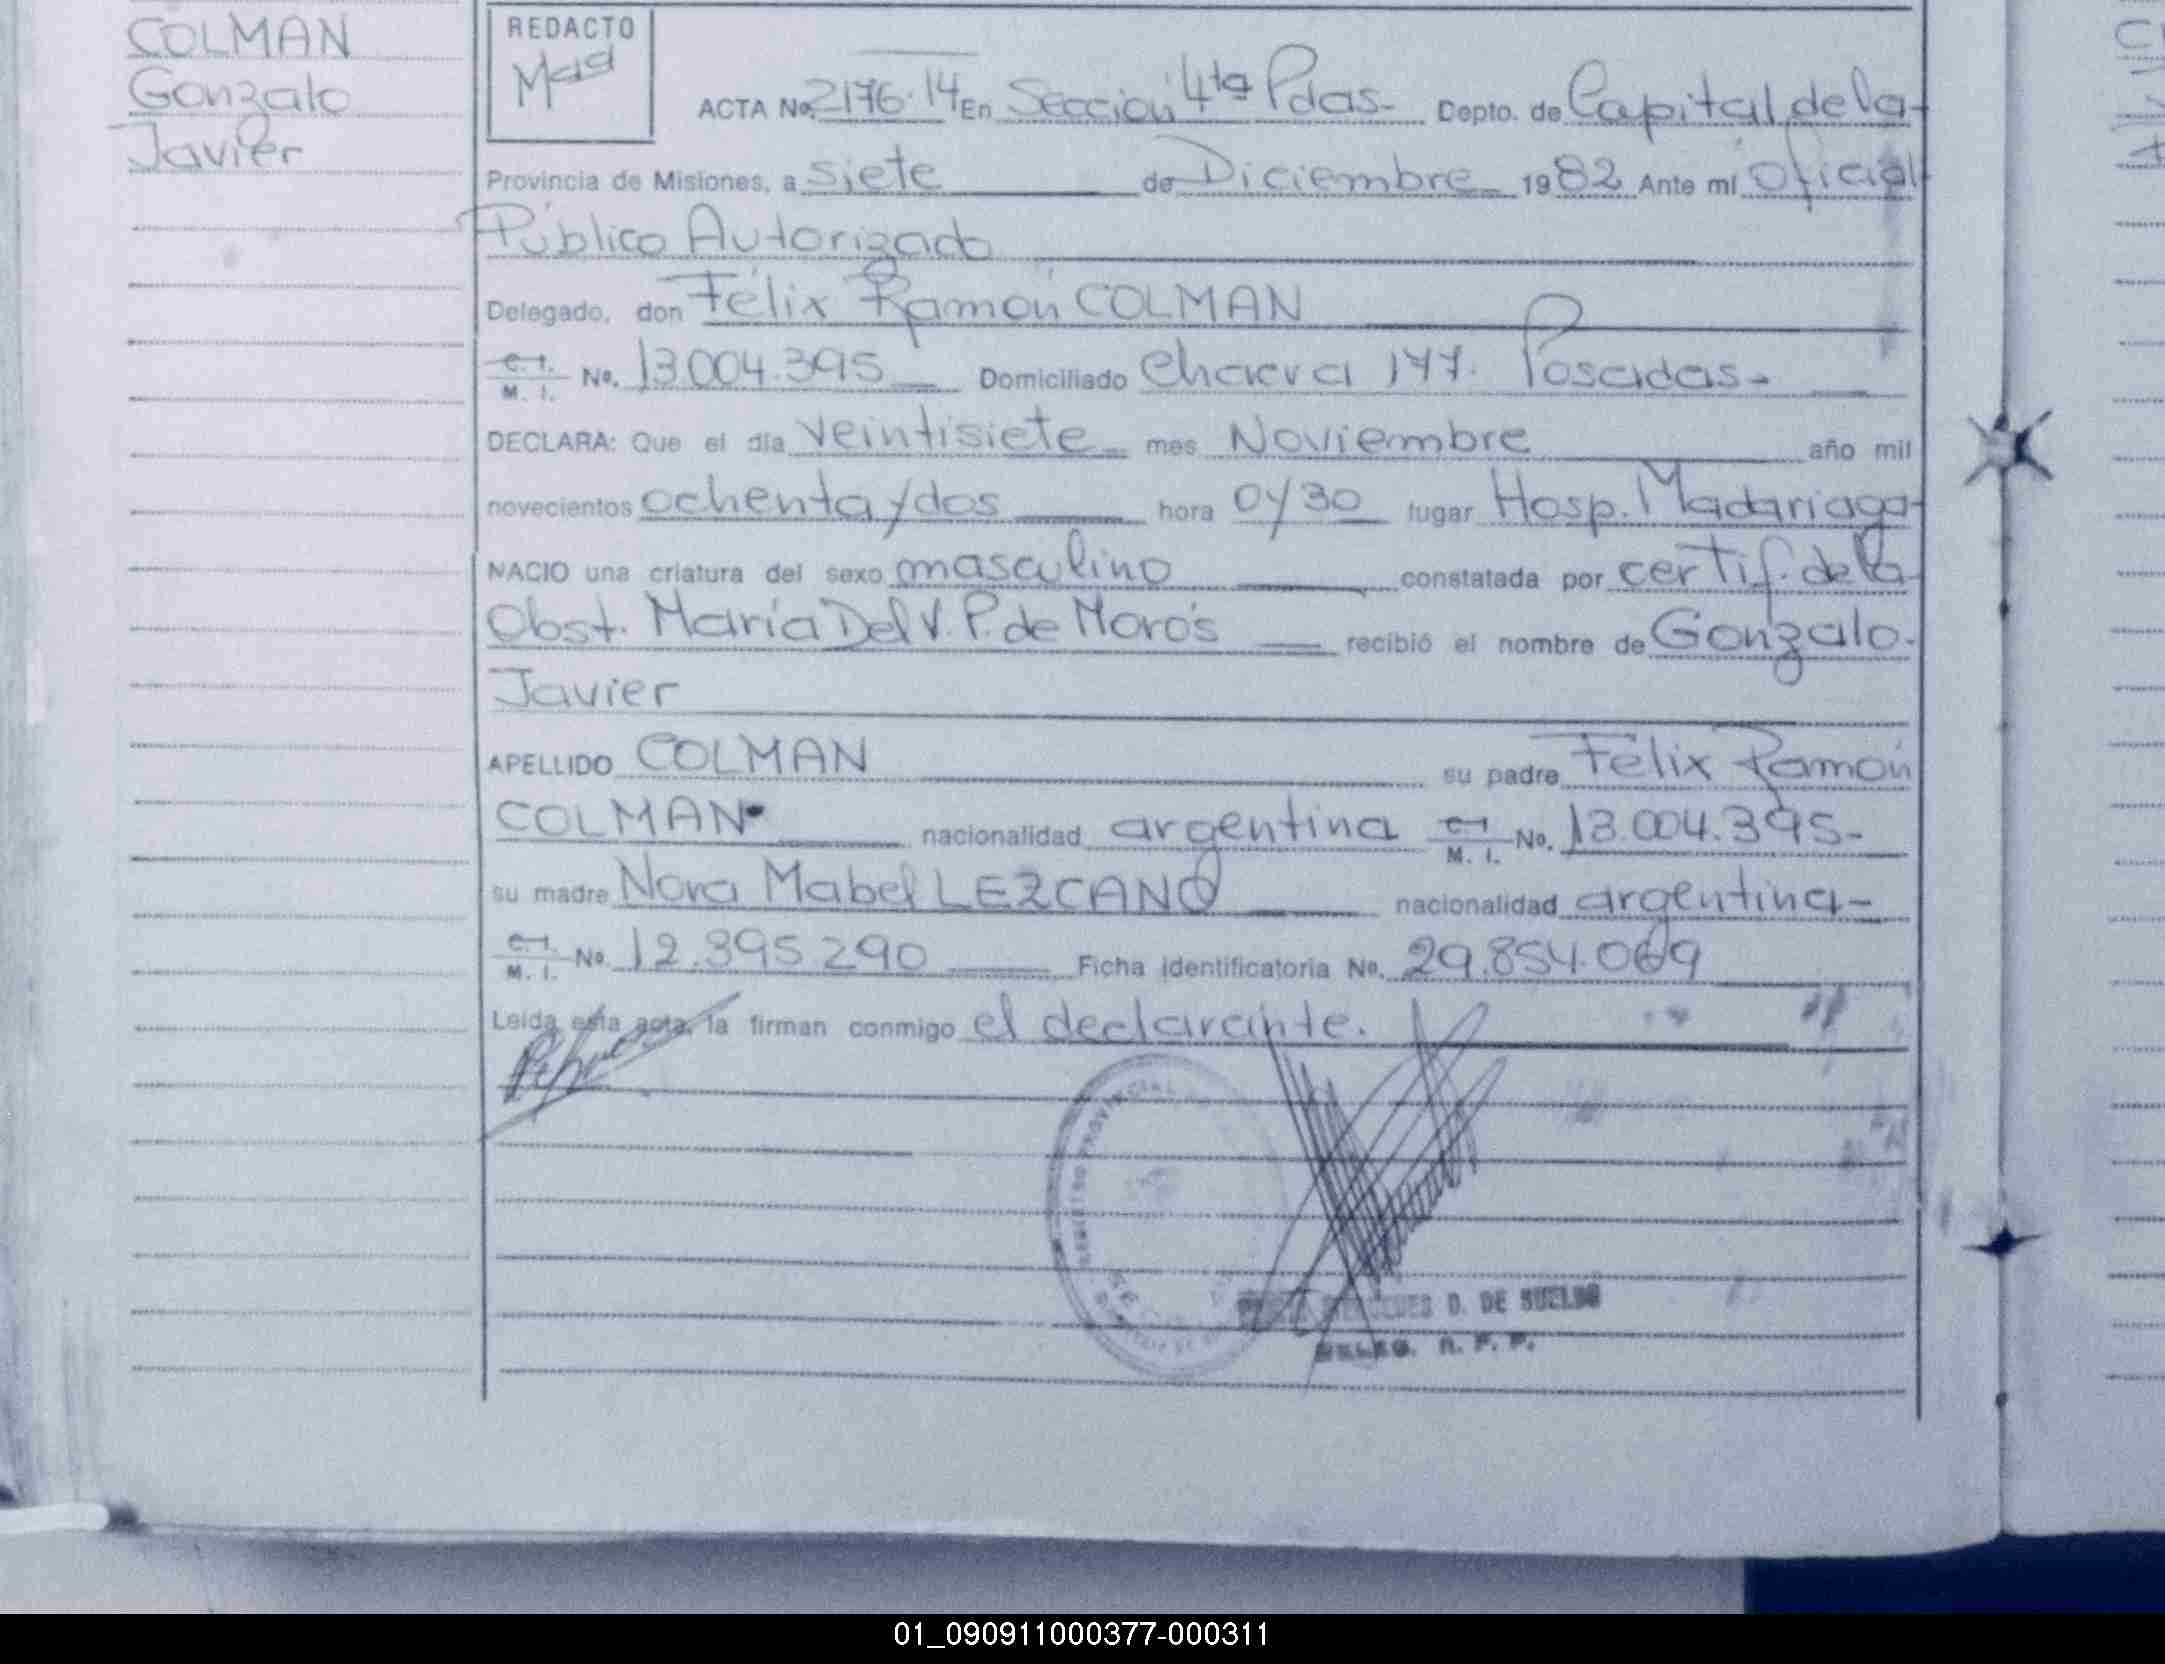 COLMAN
Gonzalo
Javier
REDACTO
ACTA No. 2176.14 En Sección 4ta Pdas- Depto. de Capital de la-
Provincia de Misiones, a siete de Diciembre 1982 Ante mí Oficial
Público Autorizado
Delegado, don Félix Ramón COLMAN
C. I. M. I. No. 13.004.395 Domiciliado Posadas-
DECLARA: Que el día veintisiete mes Noviembre año mil
novecientos ochenta y dos hora 0y30 lugar Hosp. Madariaga-
NACIO una criatura del sexo masculino constatada por certif. de la
Obst. María Del V. P. de Morós recibió el nombre de Gonzalo-
Javier
APELLIDO COLMAN su padre Félix Ramón
COLMAN nacionalidad argentina C. I. M. I. No. 13.004.395-
su madre Nora Mabel LEZCANO nacionalidad argentina-
C. I. M. I. No. 12.395.290 Ficha identificatoria No. 29.854.069
Leída esta acta, la firman conmigo el declarante.
REGISTRO PROVINCIAL
D. DE SUELDO
DELEG. R. P. P.
01_090911000377-000311